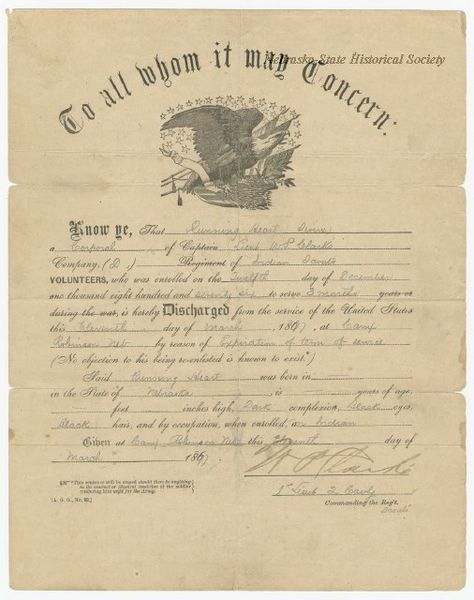 Nebraska State Historical Society
To all whom it may Concern:
Know ye, That Running Heart Sioux
a Corporal of Captain Lieut W. P. Clarks
Company, (D,) Regiment of Indian Scouts
VOLUNTEERS, who was enrolled on the Twelfth day of December
one thousand eight hundred and seventy six to serve 3 months years or
during the war, is hereby Discharged from the service of the United States
this Eleventh day of March, 1877, at Camp
Robinson Neb by reason of Expiration of term of service
(No objection to his being re-enlisted is known to exist.*)
Said Running Heart was born in
in the State of Nebraska is years of age,
feet inches high, Dark complexion, Black eyes,
Black hair, and by occupation, when enrolled, an Indian
Given at Camp Robinson Neb this Eleventh day of
March 1877
W P Clark
1st Lieut 2 Cavly
Commanding the Reg't.
Scouts
* This sentence will be erased should there be anything
in the conduct or physical condition of the soldier
rendering him unfit for the Army.
[A. G. O., No. 99.]